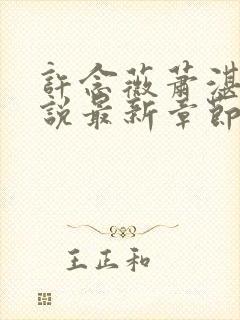 許念薇蕭湛
說最新章節
王正和